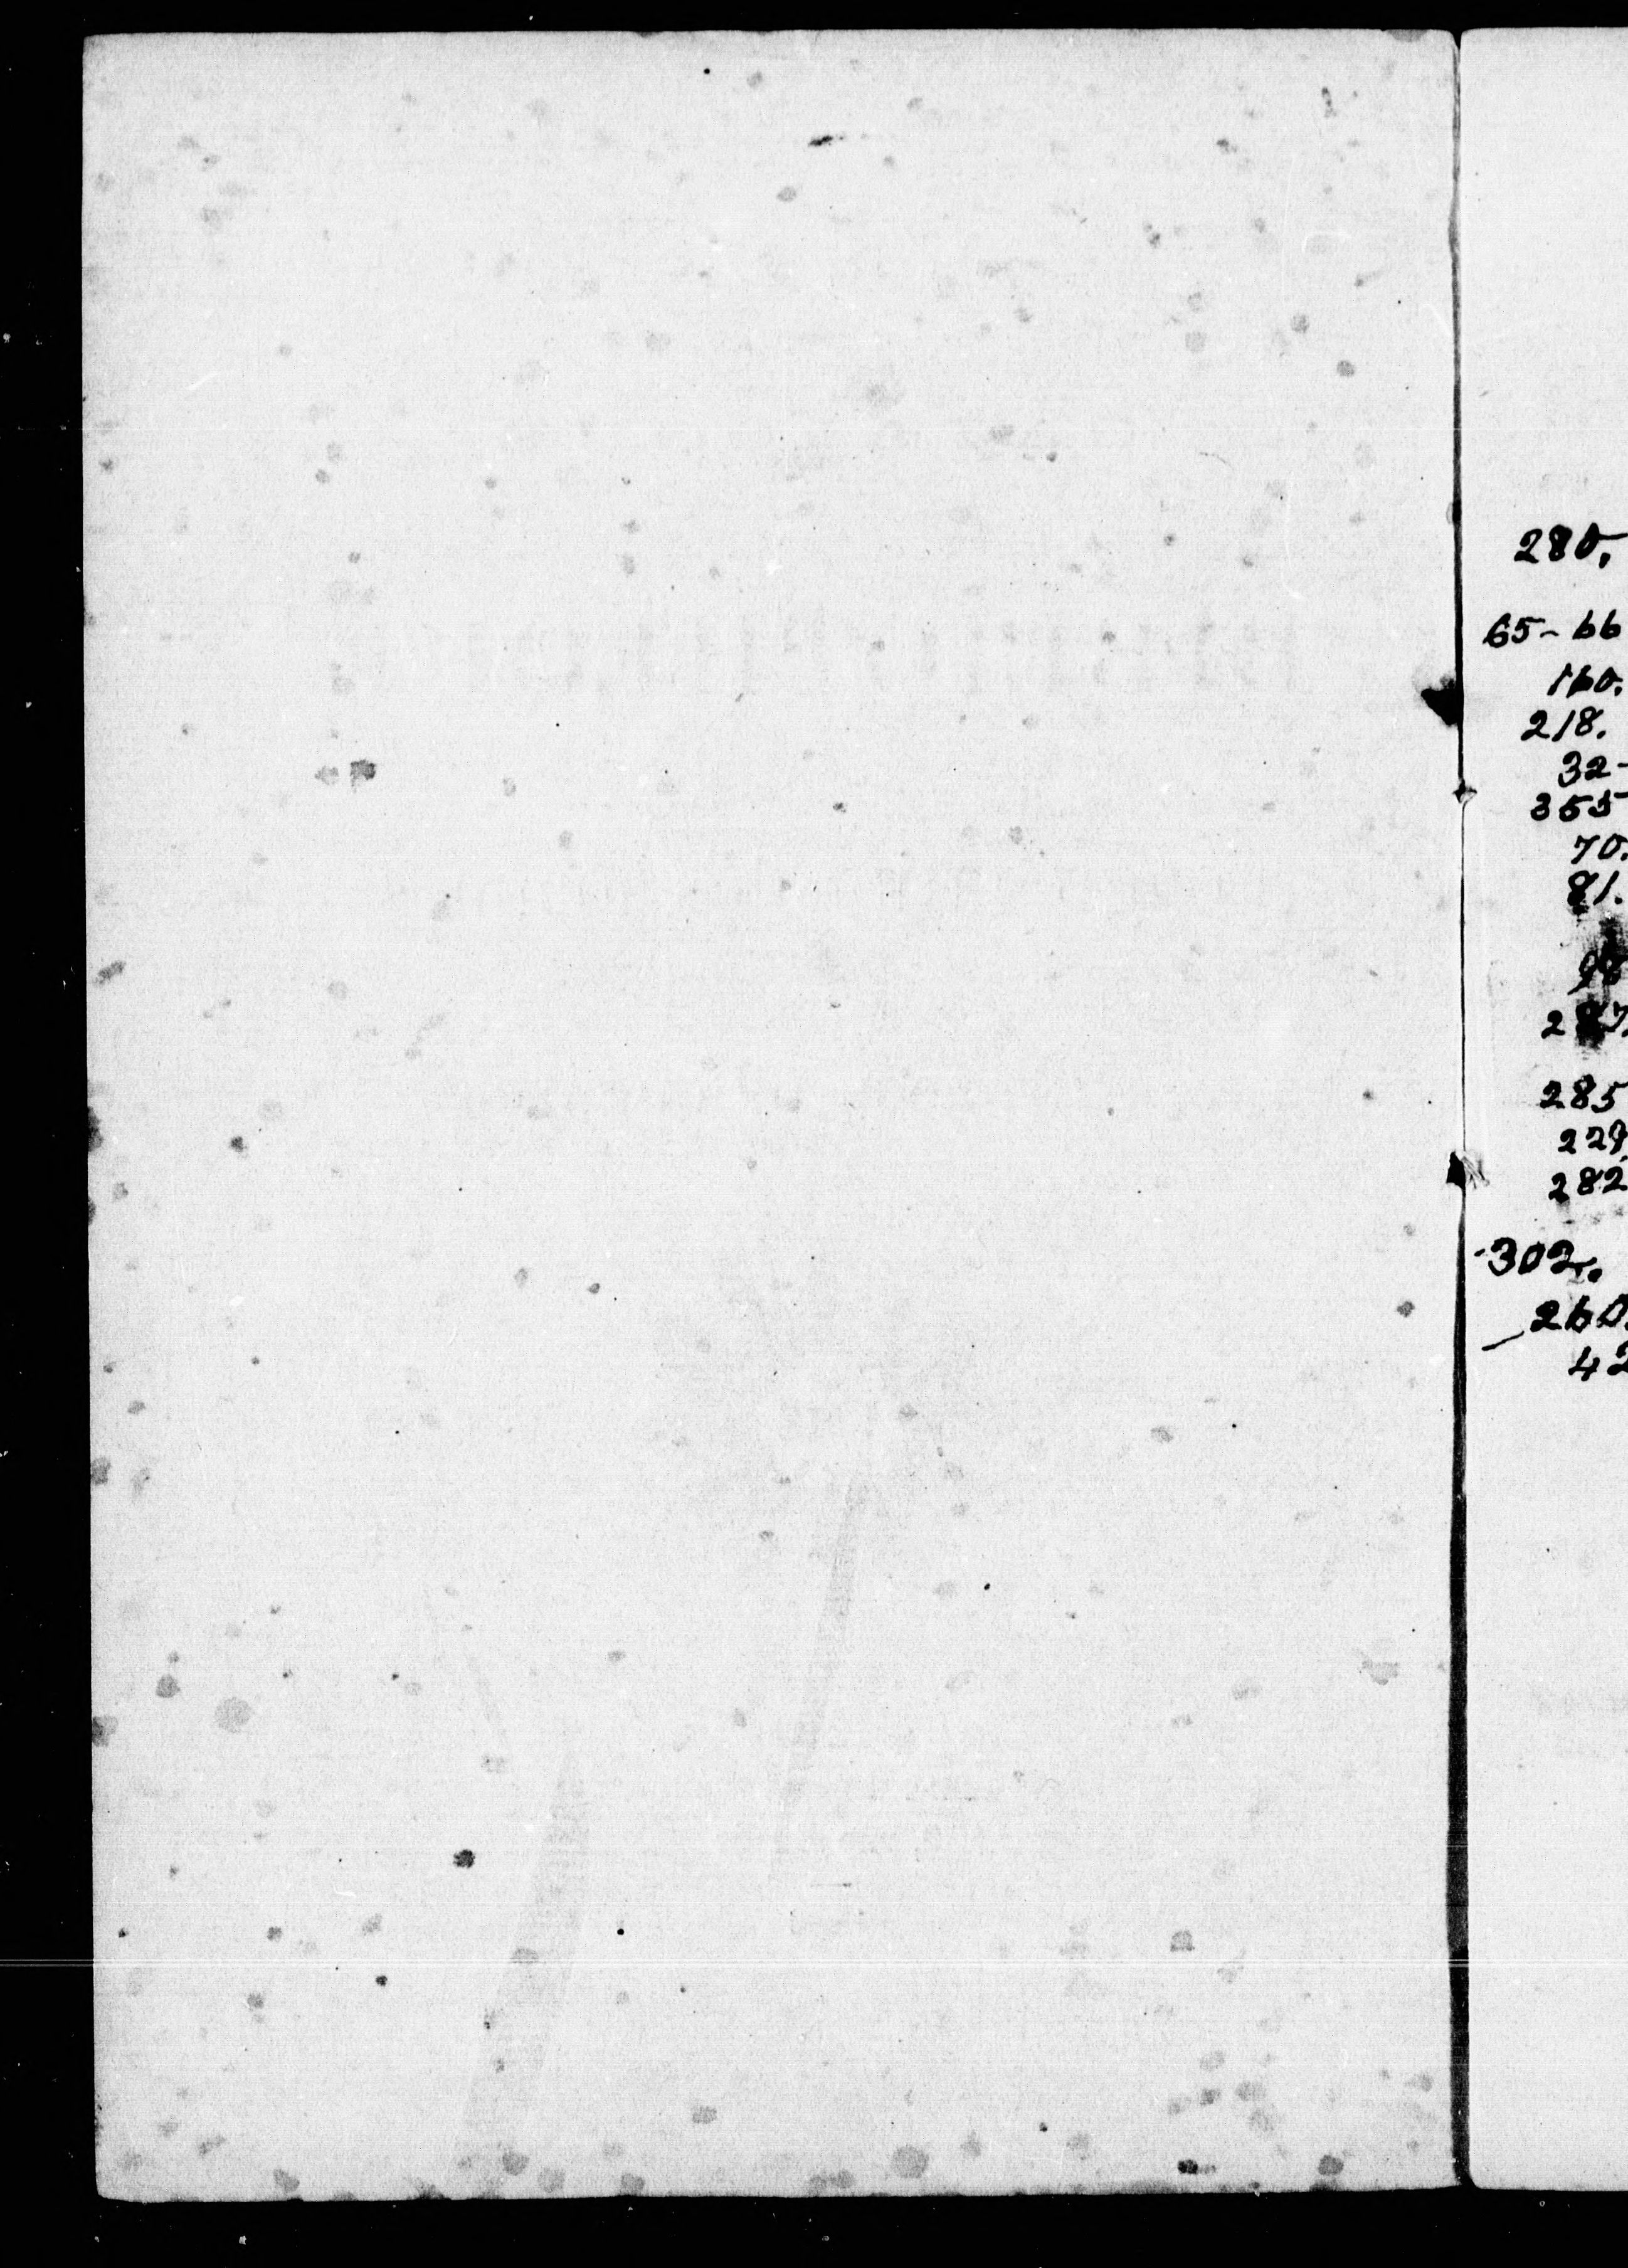 280.
65-66
160.
218.
32-
355
70.
81.
98
287.
285
229.
282
302.
260.
42